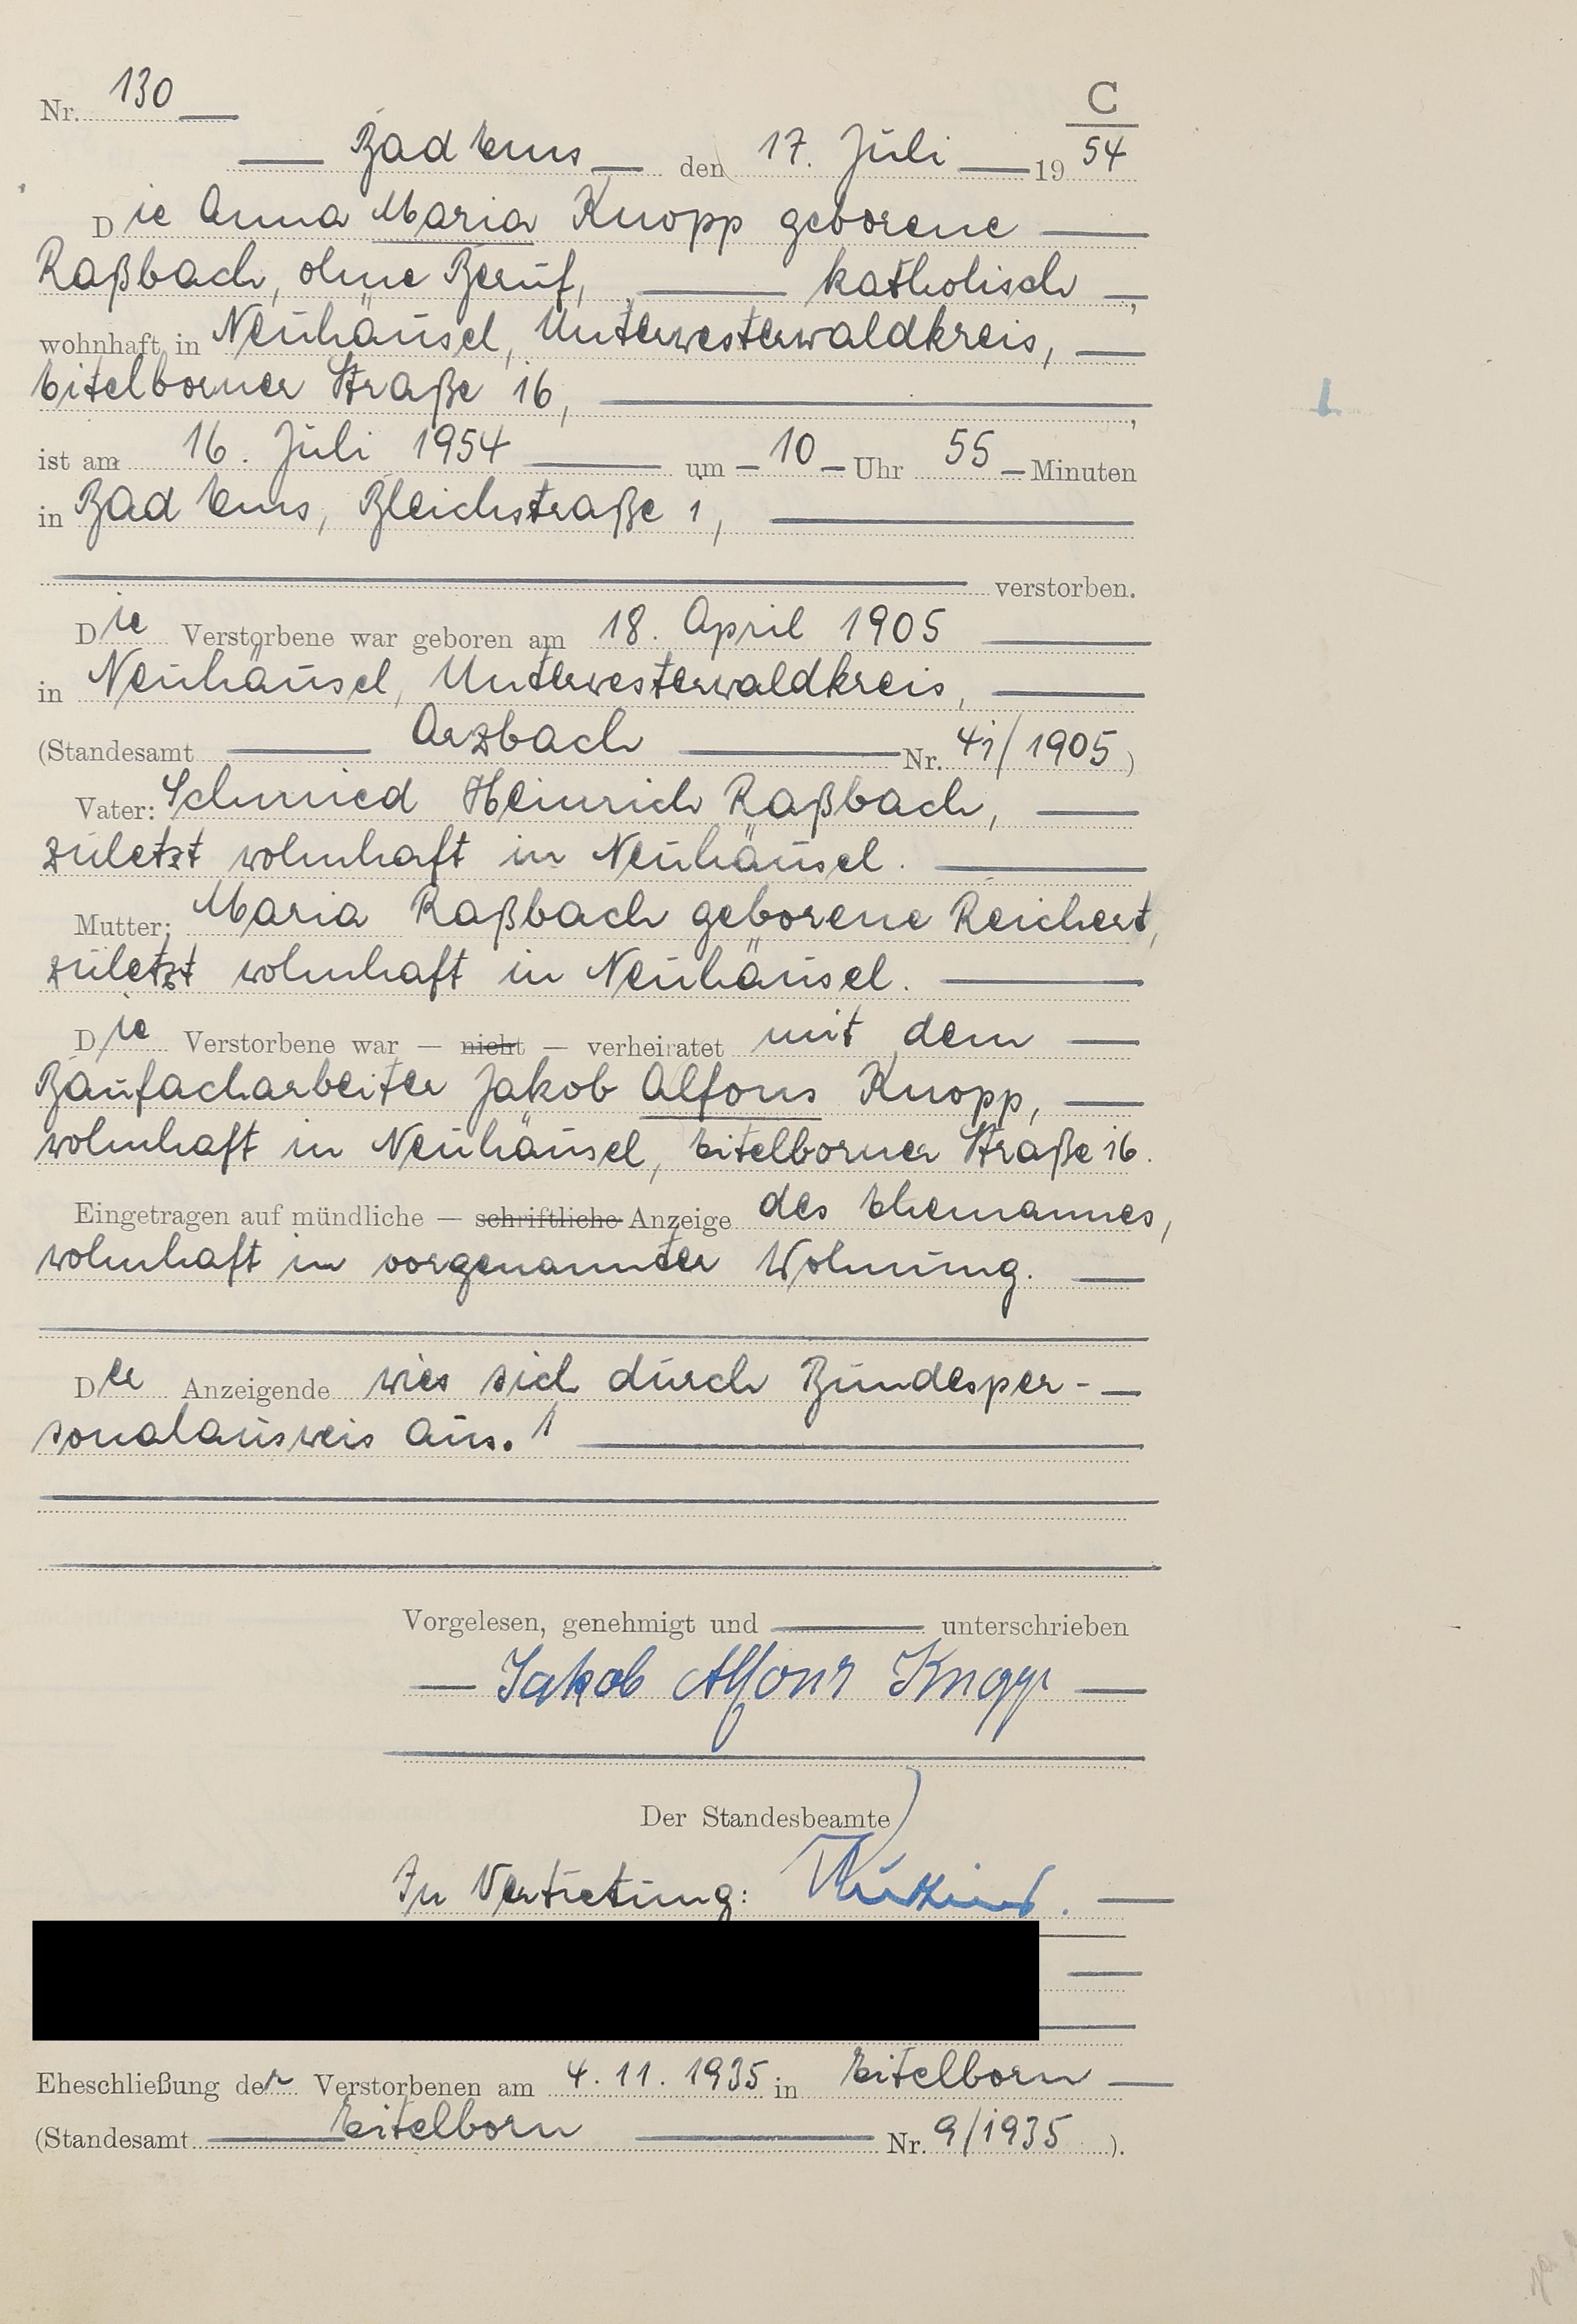 Nr. 130
C
Bad Ems den 17. Juli 19 54
Die Anna Maria Knopp geborene
Raßbach, ohne Beruf, katholisch,
wohnhaft in Neuhäusel, Unterwesterwaldkreis,
Eitelborner Straße 16,
ist am 16. Juli 1954 um 10 Uhr 55 Minuten
in Bad Ems, Bleichstraße 1,
verstorben.
Die Verstorbene war geboren am 18. April 1905
in Neuhäusel, Unterwesterwaldkreis,
(Standesamt Arzbach Nr. 41/1905)
Vater: Schmied Heinrich Raßbach,
zuletzt wohnhaft in Neuhäusel.
Mutter: Maria Raßbach geborene Reichert,
zuletzt wohnhaft in Neuhäusel.
Die Verstorbene war — nicht — verheiratet mit dem
Baufacharbeiter Jakob Alfons Knopp,
wohnhaft in Neuhäusel, Eitelborner Straße 16.
Eingetragen auf mündliche — schriftliche Anzeige des Ehemannes,
wohnhaft in vorgenannter Wohnung.
Der Anzeigende wies sich durch Bundesper-
sonalausweis aus.
Vorgelesen, genehmigt und unterschrieben
Jakob Alfons Knopp
Der Standesbeamte
In Vertretung:
Eheschließung der Verstorbenen am 4.11.1935 in Eitelborn
(Standesamt Eitelborn Nr. 9/1935).